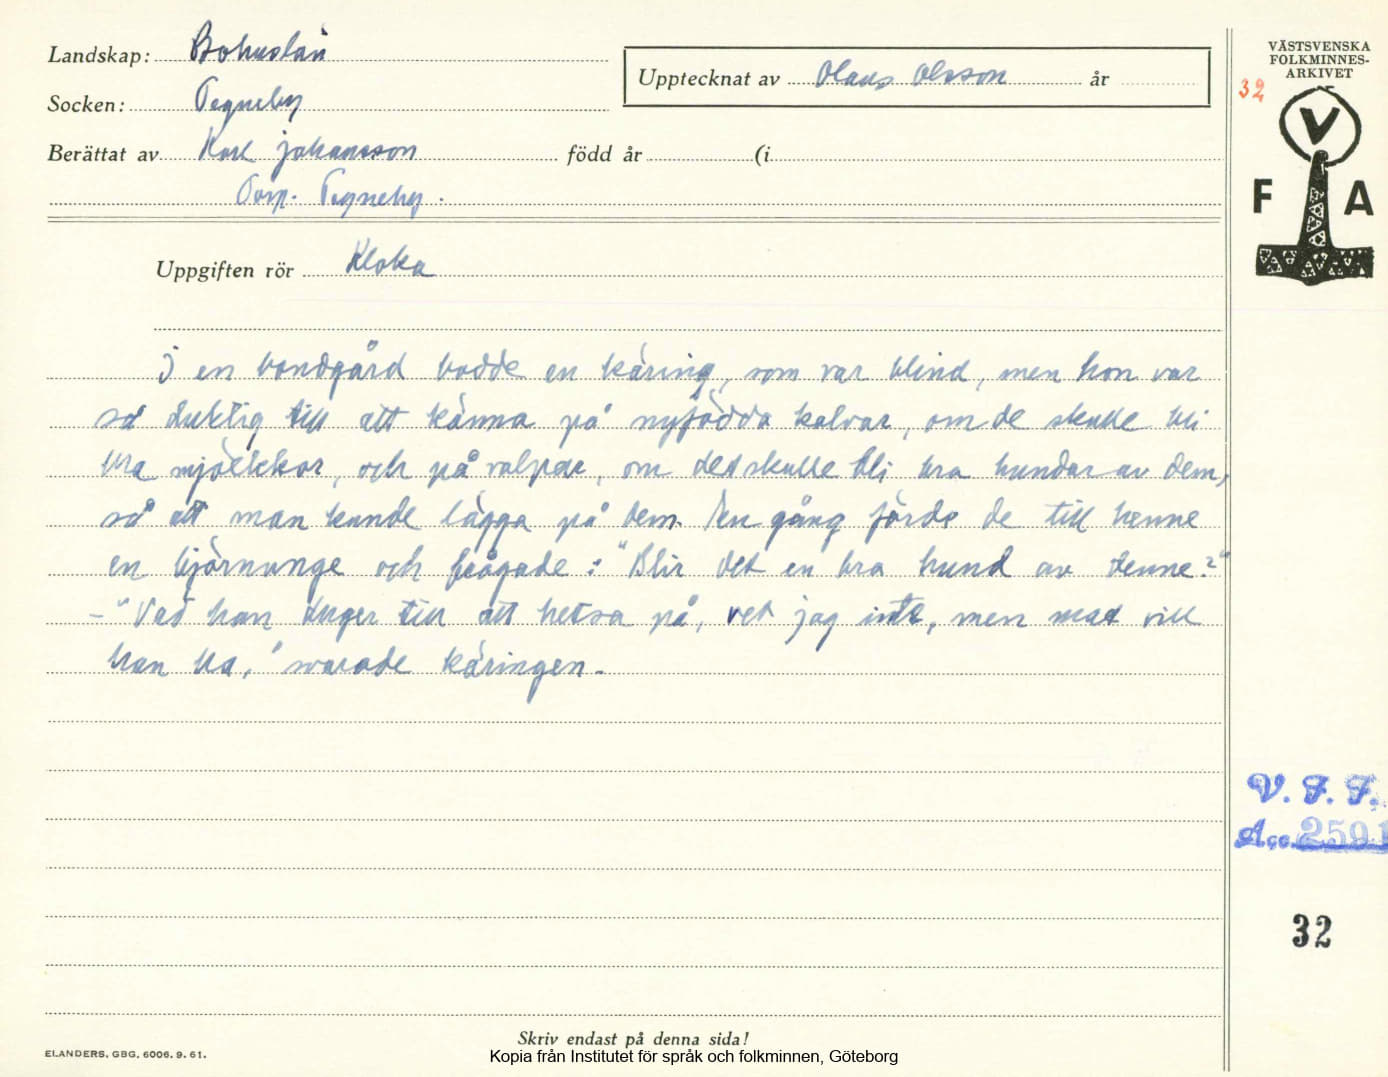 Landskap: Bohuslän
Socken: Tegneby
Berättat av Karl Johansson född år (i
Torp. Tegneby.
Upptecknat av Olaus Olsson år
VÄSTSVENSKA
FOLKMINNES-
ARKIVET
32
V
F A
Uppgiften rör Kloka
I en bondgård bodde en käring, som var blind, men hon var
så duktig till att känna på nyfödda kalvar, om de skulle bli
bra mjölkkor, och på valpar, om det skulle bli bra hundar av dem,
så att man kunde lägga på dem. En gång förde de till henne
en björnunge och frågade: "Blir det en bra hund av denne?"
- "Vad han duger till att hetsa på, vet jag inte, men mat vill
han ha," svarade käringen.
V. F. F.
Acc. 2591
32
Skriv endast på denna sida!
ELANDERS, GBG, 6006. 9. 61.
Kopia från Institutet för språk och folkminnen, Göteborg